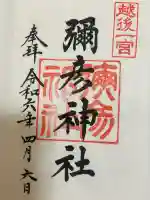 越後一宮
彌彦神社
奉拝
令和六年四月六日